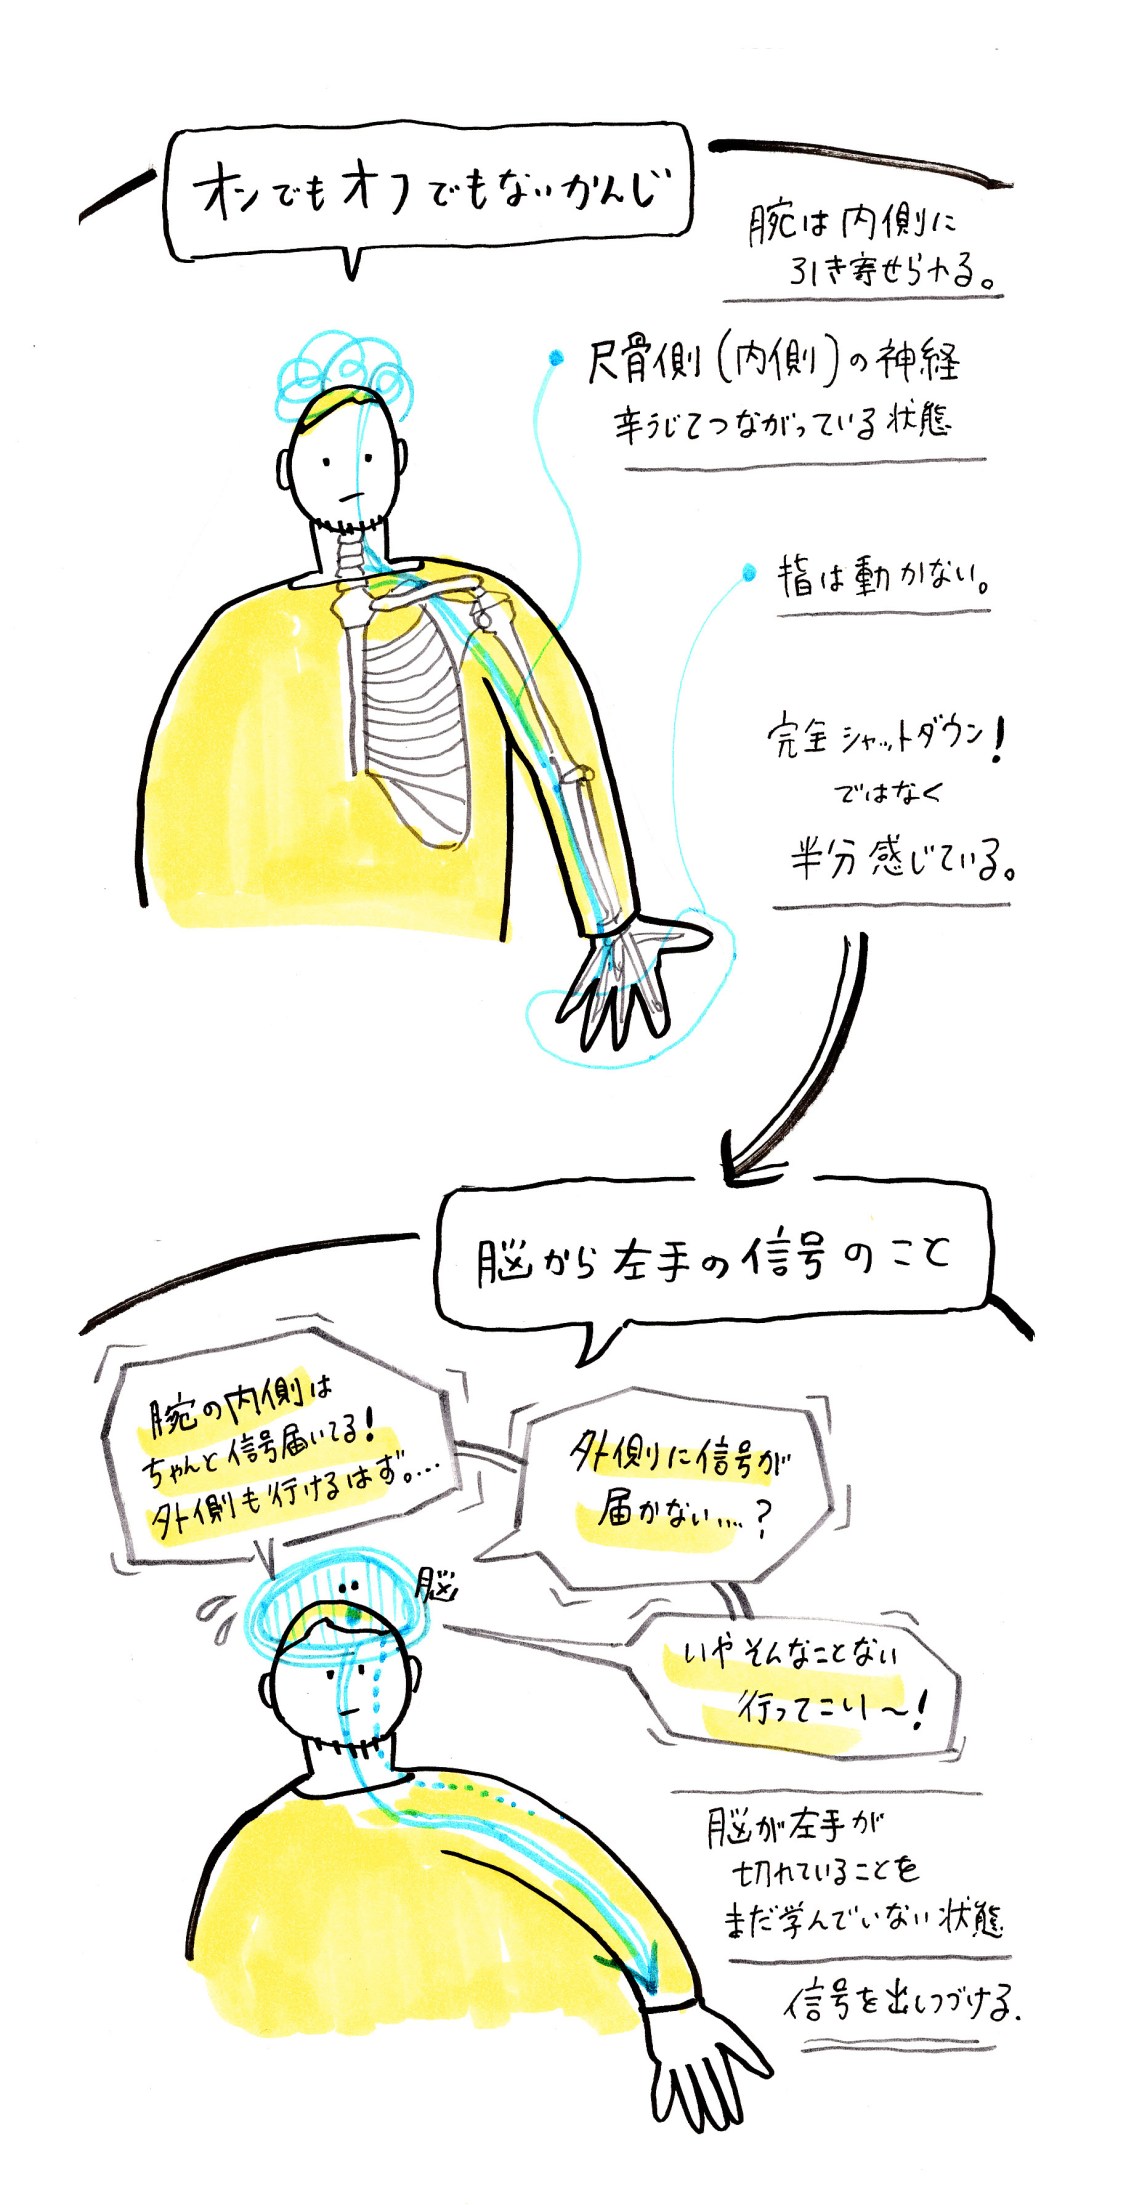 オンでもオフでもないかんじ
腕は内側に
引き寄せられる。
尺骨側(内側)の神経
辛うじてつながっている状態
指は動かない。
完全シャットダウン!
ではなく
半分感じている。
脳から左手の信号のこと
腕の内側は
ちゃんと信号届いてる!
外側も行けるはず。…
外側に信号が
届かない…?
脳
いやそんなことない
行ってこい〜!
脳が左手が
切れていることを
まだ学んでいない状態
信号を出しつづける.